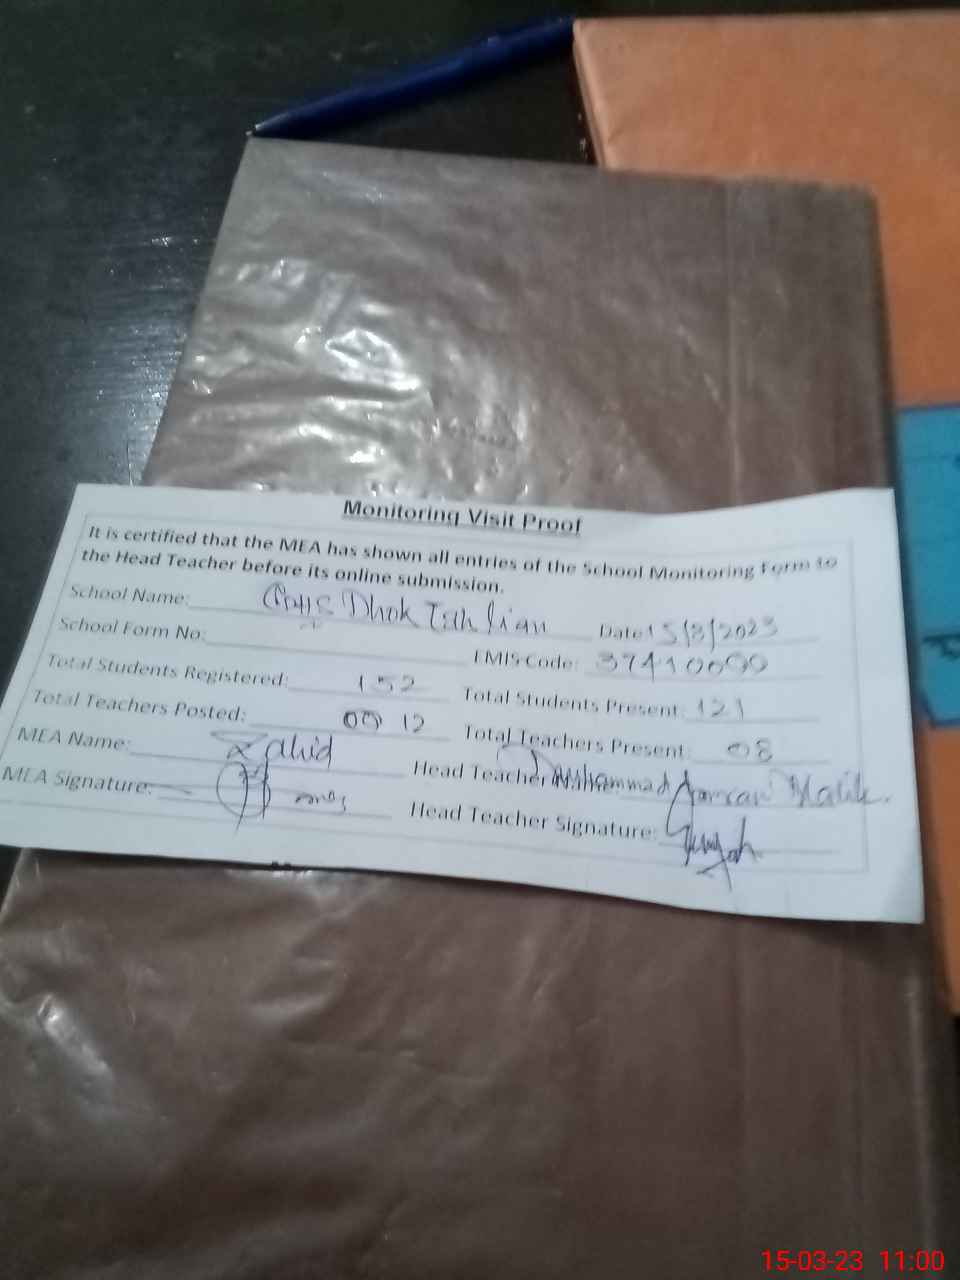 Monitoring Visit Proof
It is certified that the MEA has shown all entries of the School Monitoring Form to
the Head Teacher before its online submission.
School Name: Dhok Date: 15/3/2023
School Form No: EMIS Code:
Total Students Registered: 152 Total Students Present: 121
Total Teachers Posted: 12 Total Teachers Present: 08
MEA Name: Zahid Head Teacher Muhammad Malik.
MEA Signature: Head Teacher Signature:
15-03-23 11:00